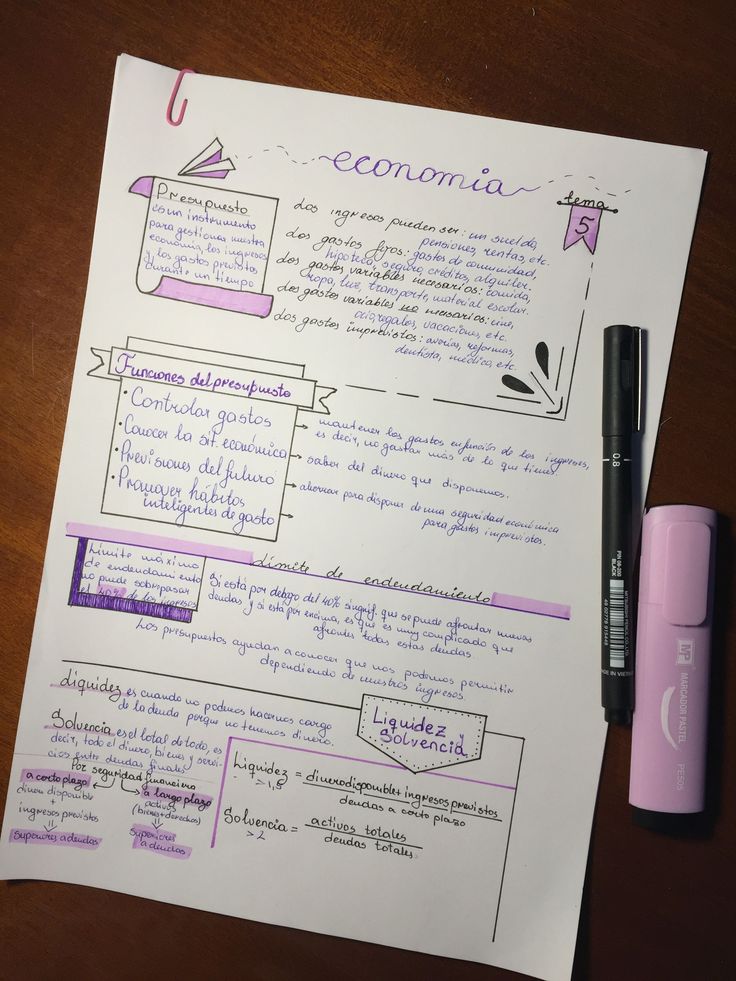 economía
tema
5
Presupuesto
es un instrumento
para gestionar nuestra
economía, los ingresos
y los gastos previstos
durante un tiempo
Los ingresos pueden ser: un sueldo,
pensiones, rentas, etc.
Los gastos fijos: gastos de comunidad,
hipoteca, seguro, créditos, alquiler.
Los gastos variables necesarios: comida,
ropa, luz, transporte, material escolar.
Los gastos variables no necesarios: cine,
ocio, regalos, vacaciones, etc.
Los gastos imprevistos: averías, reformas,
dentista, médico, etc.
Funciones del presupuesto
· Controlar gastos
· Conocer la sit. económica
· Previsiones del futuro
· Promover hábitos
inteligentes de gasto
mantener los gastos en función de los ingresos,
es decir, no gastar más de lo que tienes.
saber del dinero que disponemos.
ahorrar para disponer de una seguridad económica
para gastos imprevistos.
Límite de endendamiento
Límite máximo
de endendamiento
no puede sobrepasar
el 40% de los ingresos
Si está por debajo del 40% signif. que se puede afrontar nuevas
deudas, y si esta por encima, es que es muy complicado que
afrontes todas estas deudas
Los presupuestos ayudan a conocer que nos podemos permitir
dependiendo de nuestros ingresos.
Liquidez es cuando no podemos hacernos cargo
de la deuda porque no tenemos dinero.
Solvencia es el total de todo, es
decir, todo el dinero, bienes y servi-
cios entre deudas finales
Por seguridad financiera
a corto plazo
dinero disponible
+
ingresos previstos
=
superiores a deudas
a largo plazo
activos
(bienes+derechos)
=
superiores
a deudas
Liquidez y
Solvencia
Liquidez = dinero disponible + ingresos previstos
> 1,5
deudas a corto plazo
Solvencia = activos totales
> 2
deudas totales
0.8
PIN 08-200
BLACK
MP
MARCADOR PASTEL
PE505